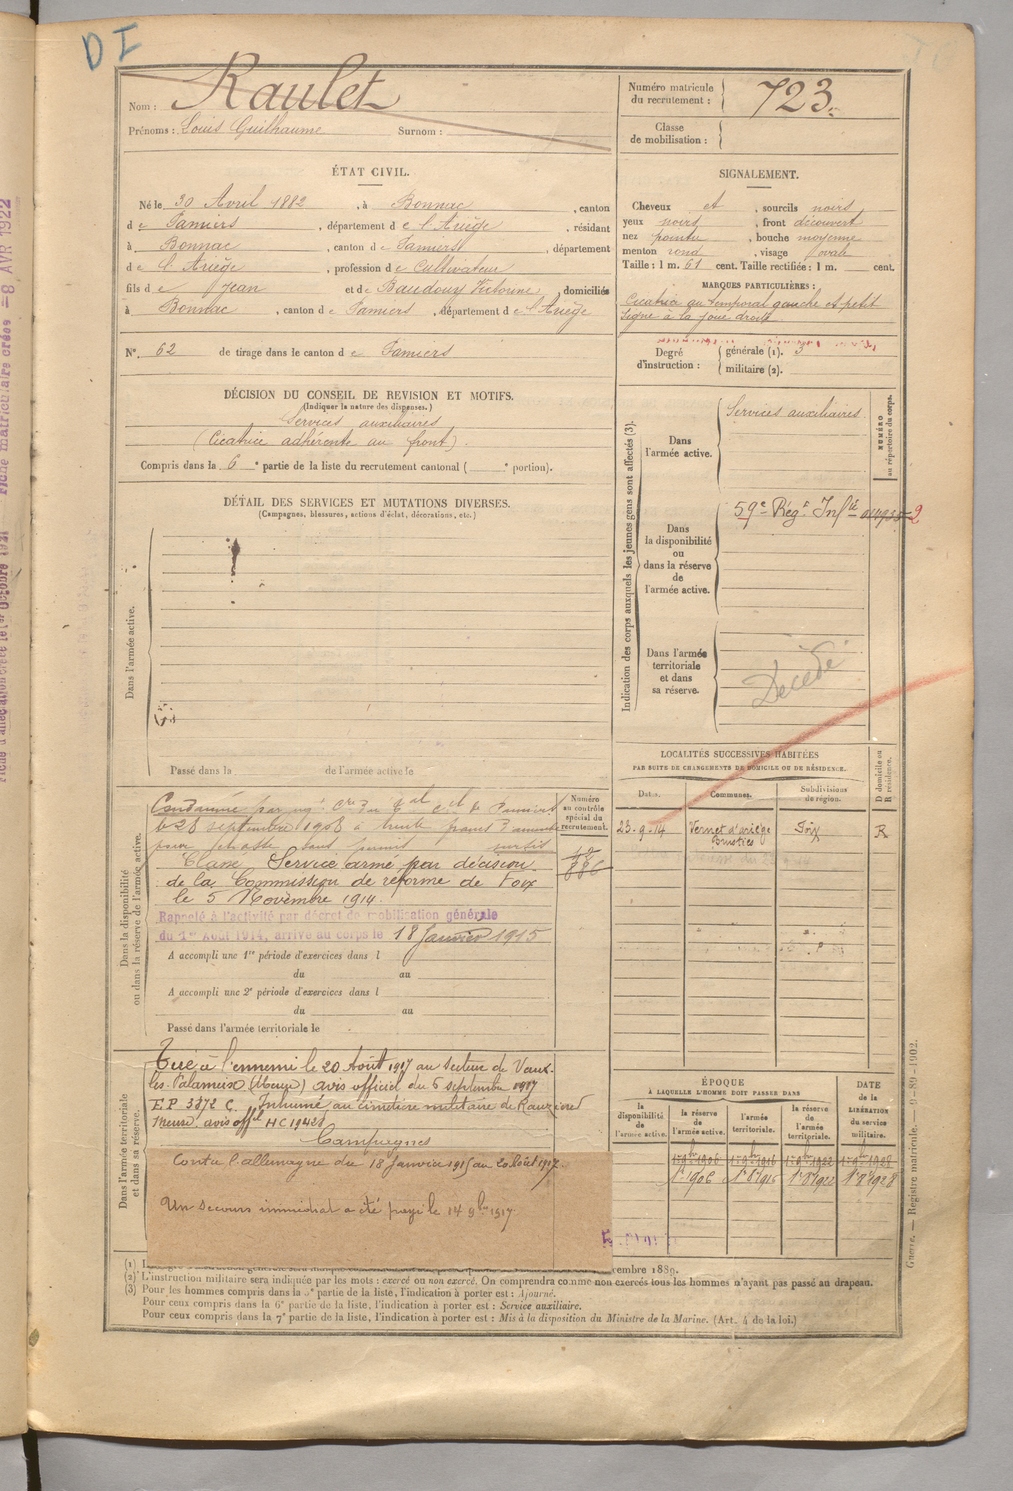 DI
Nom : Raulet
Prénoms : Louis Guilhaume Surnom :
Numéro matricule du recrutement : 723.
Classe de mobilisation :
ÉTAT CIVIL.
Né le 30 Avril 1882, à Bonnac, canton
de Pamiers, département de l'Ariège, résidant
à Bonnac, canton de Pamiers, département
de l'Ariège, profession de Cultivateur
fils de Jean et de Baudouy Victorine, domiciliés
à Bonnac, canton de Pamiers, département de l'Ariège
N° 62 de tirage dans le canton de Pamiers
SIGNALEMENT.
Cheveux et, sourcils noirs
yeux noirs, front découvert
nez pointu, bouche moyenne
menton rond, visage ovale
Taille : 1 m. 61 cent. Taille rectifiée : 1 m. cent.
MARQUES PARTICULIÈRES :
Cicatrice au temporal gauche et petit
signe à la joue droite
Degré d'instruction : générale (1). 3
militaire (2).
DÉCISION DU CONSEIL DE REVISION ET MOTIFS.
(Indiquer la nature des dispenses.)
Services auxiliaires
(Cicatrice adhérente au front).
Compris dans la 6e partie de la liste du recrutement cantonal ( e portion).
DÉTAIL DES SERVICES ET MUTATIONS DIVERSES.
(Campagnes, blessures, actions d'éclat, décorations, etc.)
Dans l'armée active.
Passé dans la de l'armée active le
Indication des corps auxquels les jeunes gens sont affectés (3).
NUMÉRO au répertoire du corps.
Dans l'armée active.
Services auxiliaires.
Dans la disponibilité ou dans la réserve de l'armée active.
59e Régt Infie
Dans l'armée territoriale et dans sa réserve.
Décédé
LOCALITÉS SUCCESSIVES HABITÉES
PAR SUITE DE CHANGEMENTS DE DOMICILE OU DE RÉSIDENCE.
Dates. Communes. Subdivisions de région. D domicile ou R résidence.
23-9-14 Vernet d'ariège Foix R
Dans la disponibilité ou dans la réserve de l'armée active.
Numéro au contrôle spécial du recrutement.
Condamné par
le 28 septembre 1908 à trente francs d'amende
Classé Service armé par décision
de la Commission de réforme de Foix
le 5 Novembre 1914.
Rappelé à l'activité par décret de mobilisation générale
du 1er Août 1914, arrivé au corps le 18 Janvier 1915
A accompli une 1re période d'exercices dans l
du au
A accompli une 2e période d'exercices dans l
du au
Passé dans l'armée territoriale le
Dans l'armée territoriale et dans sa réserve.
Tué à l'ennemi le 20 Août 1917 au secteur de Vaux-
les-Palameix (Meuse) avis officiel du 6 septembre 1917
Inhumé au cimetière militaire de
Meuse. avis offel
Campagnes
Contre l'allemagne du 18 Janvier 1915 au 20 Août 1917.
Un secours immédiat a été payé le 14 9bre 1917
ÉPOQUE
À LAQUELLE L'HOMME DOIT PASSER DANS
la disponibilité de l'armée active. la réserve de l'armée active. l'armée territoriale. la réserve de l'armée territoriale.
DATE de la LIBÉRATION du service militaire.
cembre 1889.
(2) L'instruction militaire sera indiquée par les mots : exercé ou non exercé. On comprendra comme non exercés tous les hommes n'ayant pas passé au drapeau.
(3) Pour les hommes compris dans la 5e partie de la liste, l'indication à porter est : Ajourné.
Pour ceux compris dans la 6e partie de la liste, l'indication à porter est : Service auxiliaire.
Pour ceux compris dans la 7e partie de la liste, l'indication à porter est : Mis à la disposition du Ministre de la Marine. (Art. 4 de la loi.)